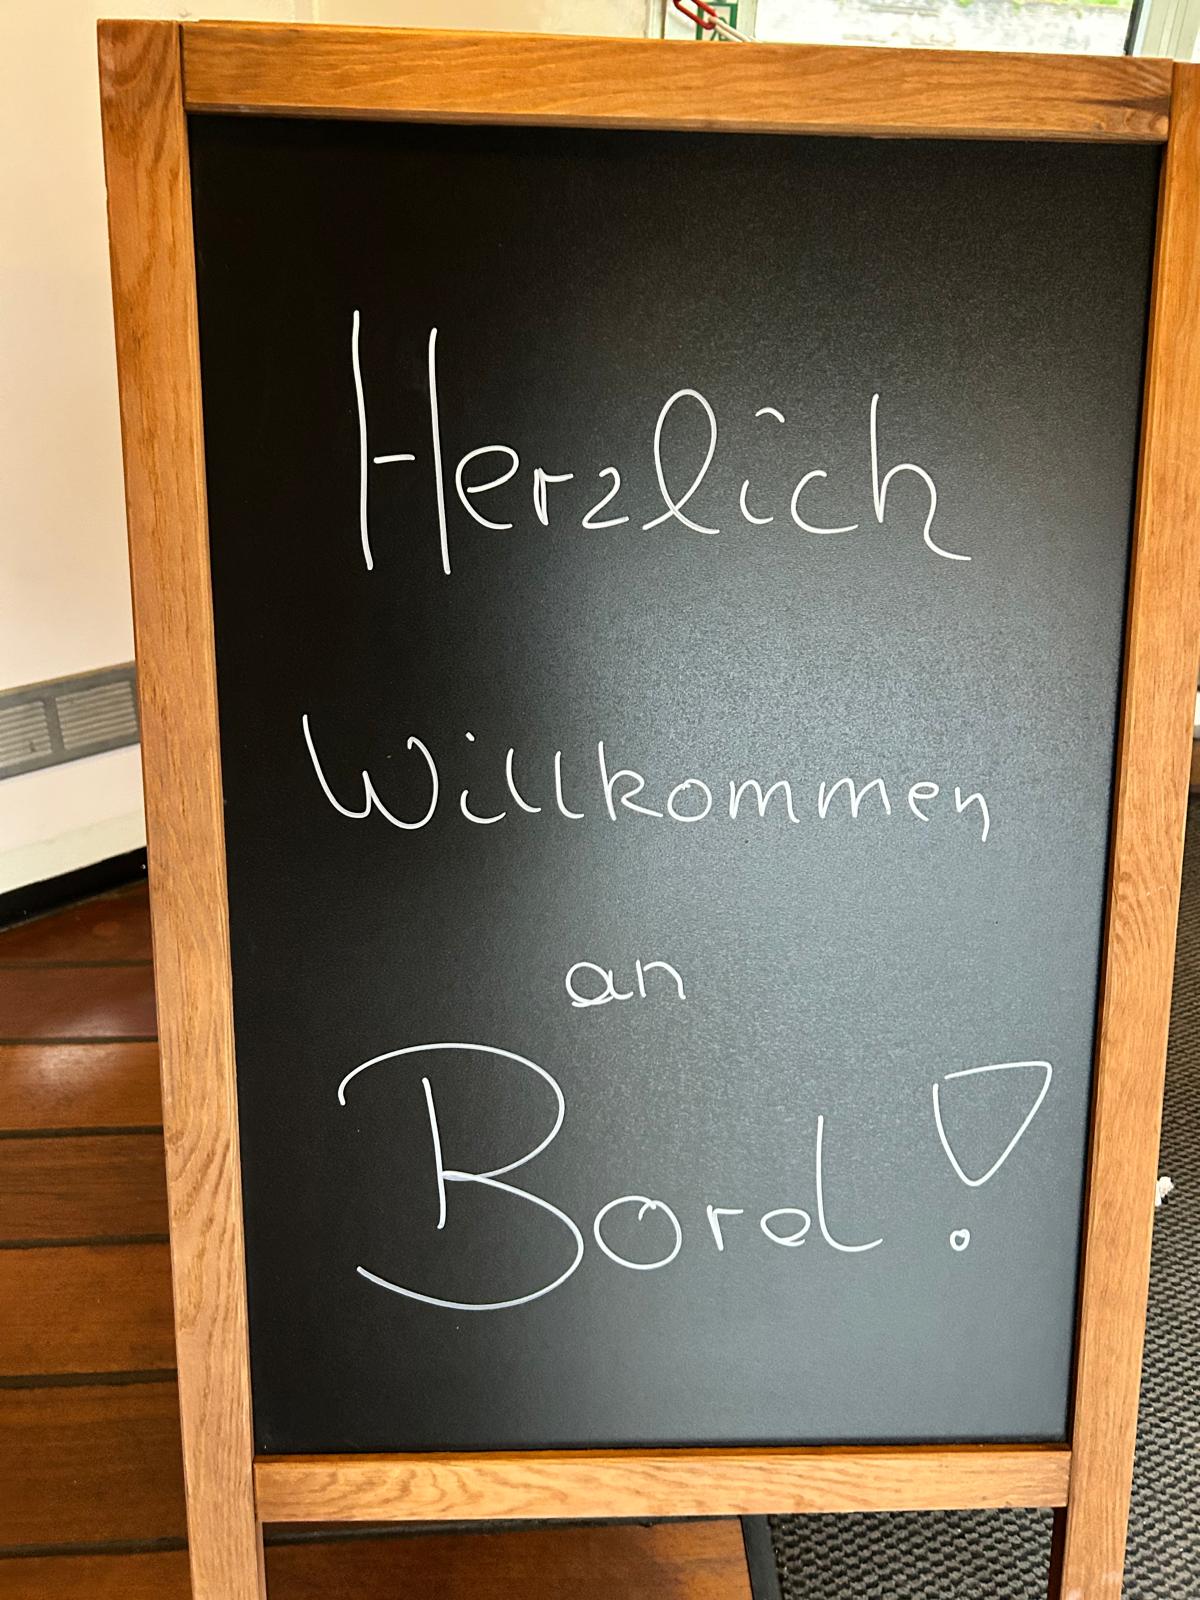 Herzlich
Willkommen
an
Bord!